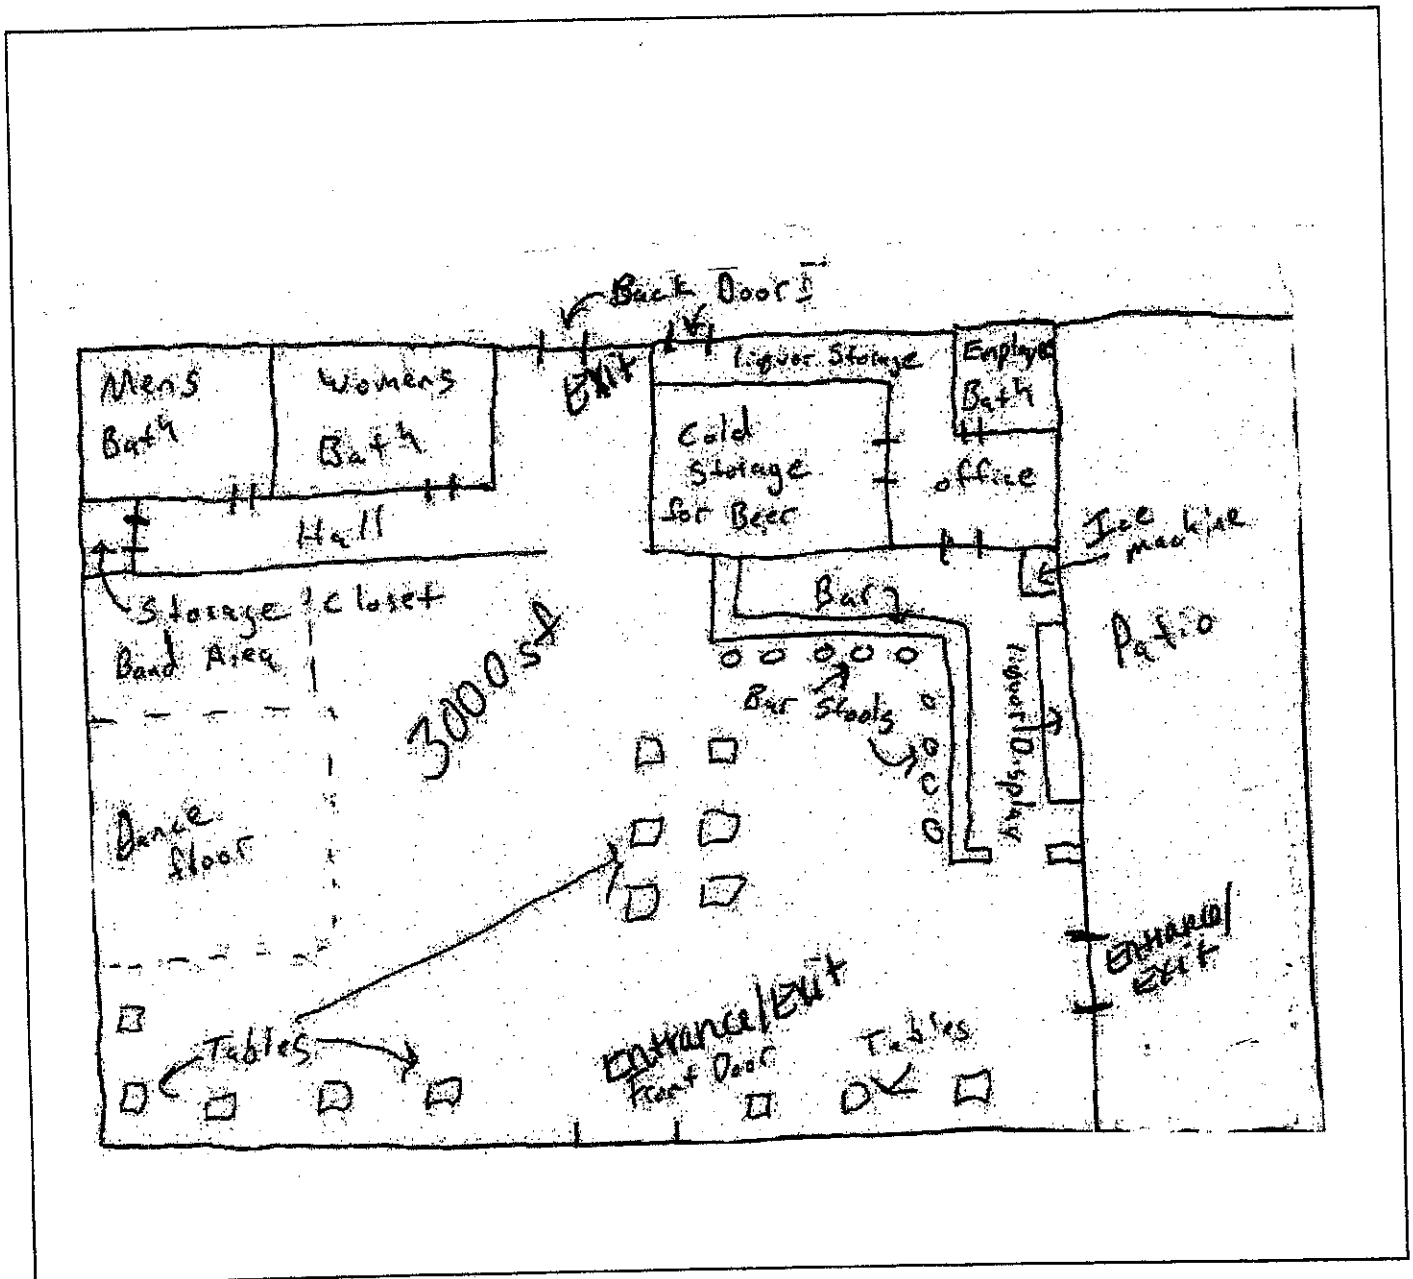 Back Doors
Exit
Mens
Bath
Womens
Bath
Liquor Storage
Employee
Bath
Cold
Storage
for Beer
Office
Hall
Ice
machine
Storage Closet
Band Area
Bar
Patio
3000 sf
Bar Stools
Liquor Display
Dance
floor
Entrance/
Exit
Tables
Entrance/Exit
Front Door
Tables